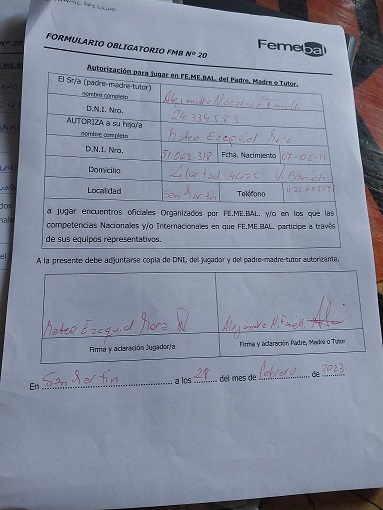 FORMULARIO OBLIGATORIO FMB Nº 20
Femebal
Autorización para jugar en FE.ME.BAL. del Padre, Madre o Tutor.
El Sr/a (padre-madre-tutor)
nombre completo
D.N.I. Nro. 24334583
AUTORIZA a su hijo/a Mateo Ezequiel Mora
nombre completo
D.N.I. Nro. 51.062.318 Fcha. Nacimiento 07-06-11
Domicilio Libertad 4275
Localidad San Martín Teléfono
a jugar encuentros oficiales Organizados por FE.ME.BAL. y/o en los que las
competencias Nacionales y/o Internacionales en que FE.ME.BAL. participe a través
de sus equipos representativos.
A la presente debe adjuntarse copia de DNI, del jugador y del padre-madre-tutor autorizante.
Mateo Ezequiel Mora
Firma y aclaración Jugador/a Firma y aclaración Padre, Madre o Tutor
En San Martin a los 28 del mes de febrero de 2023